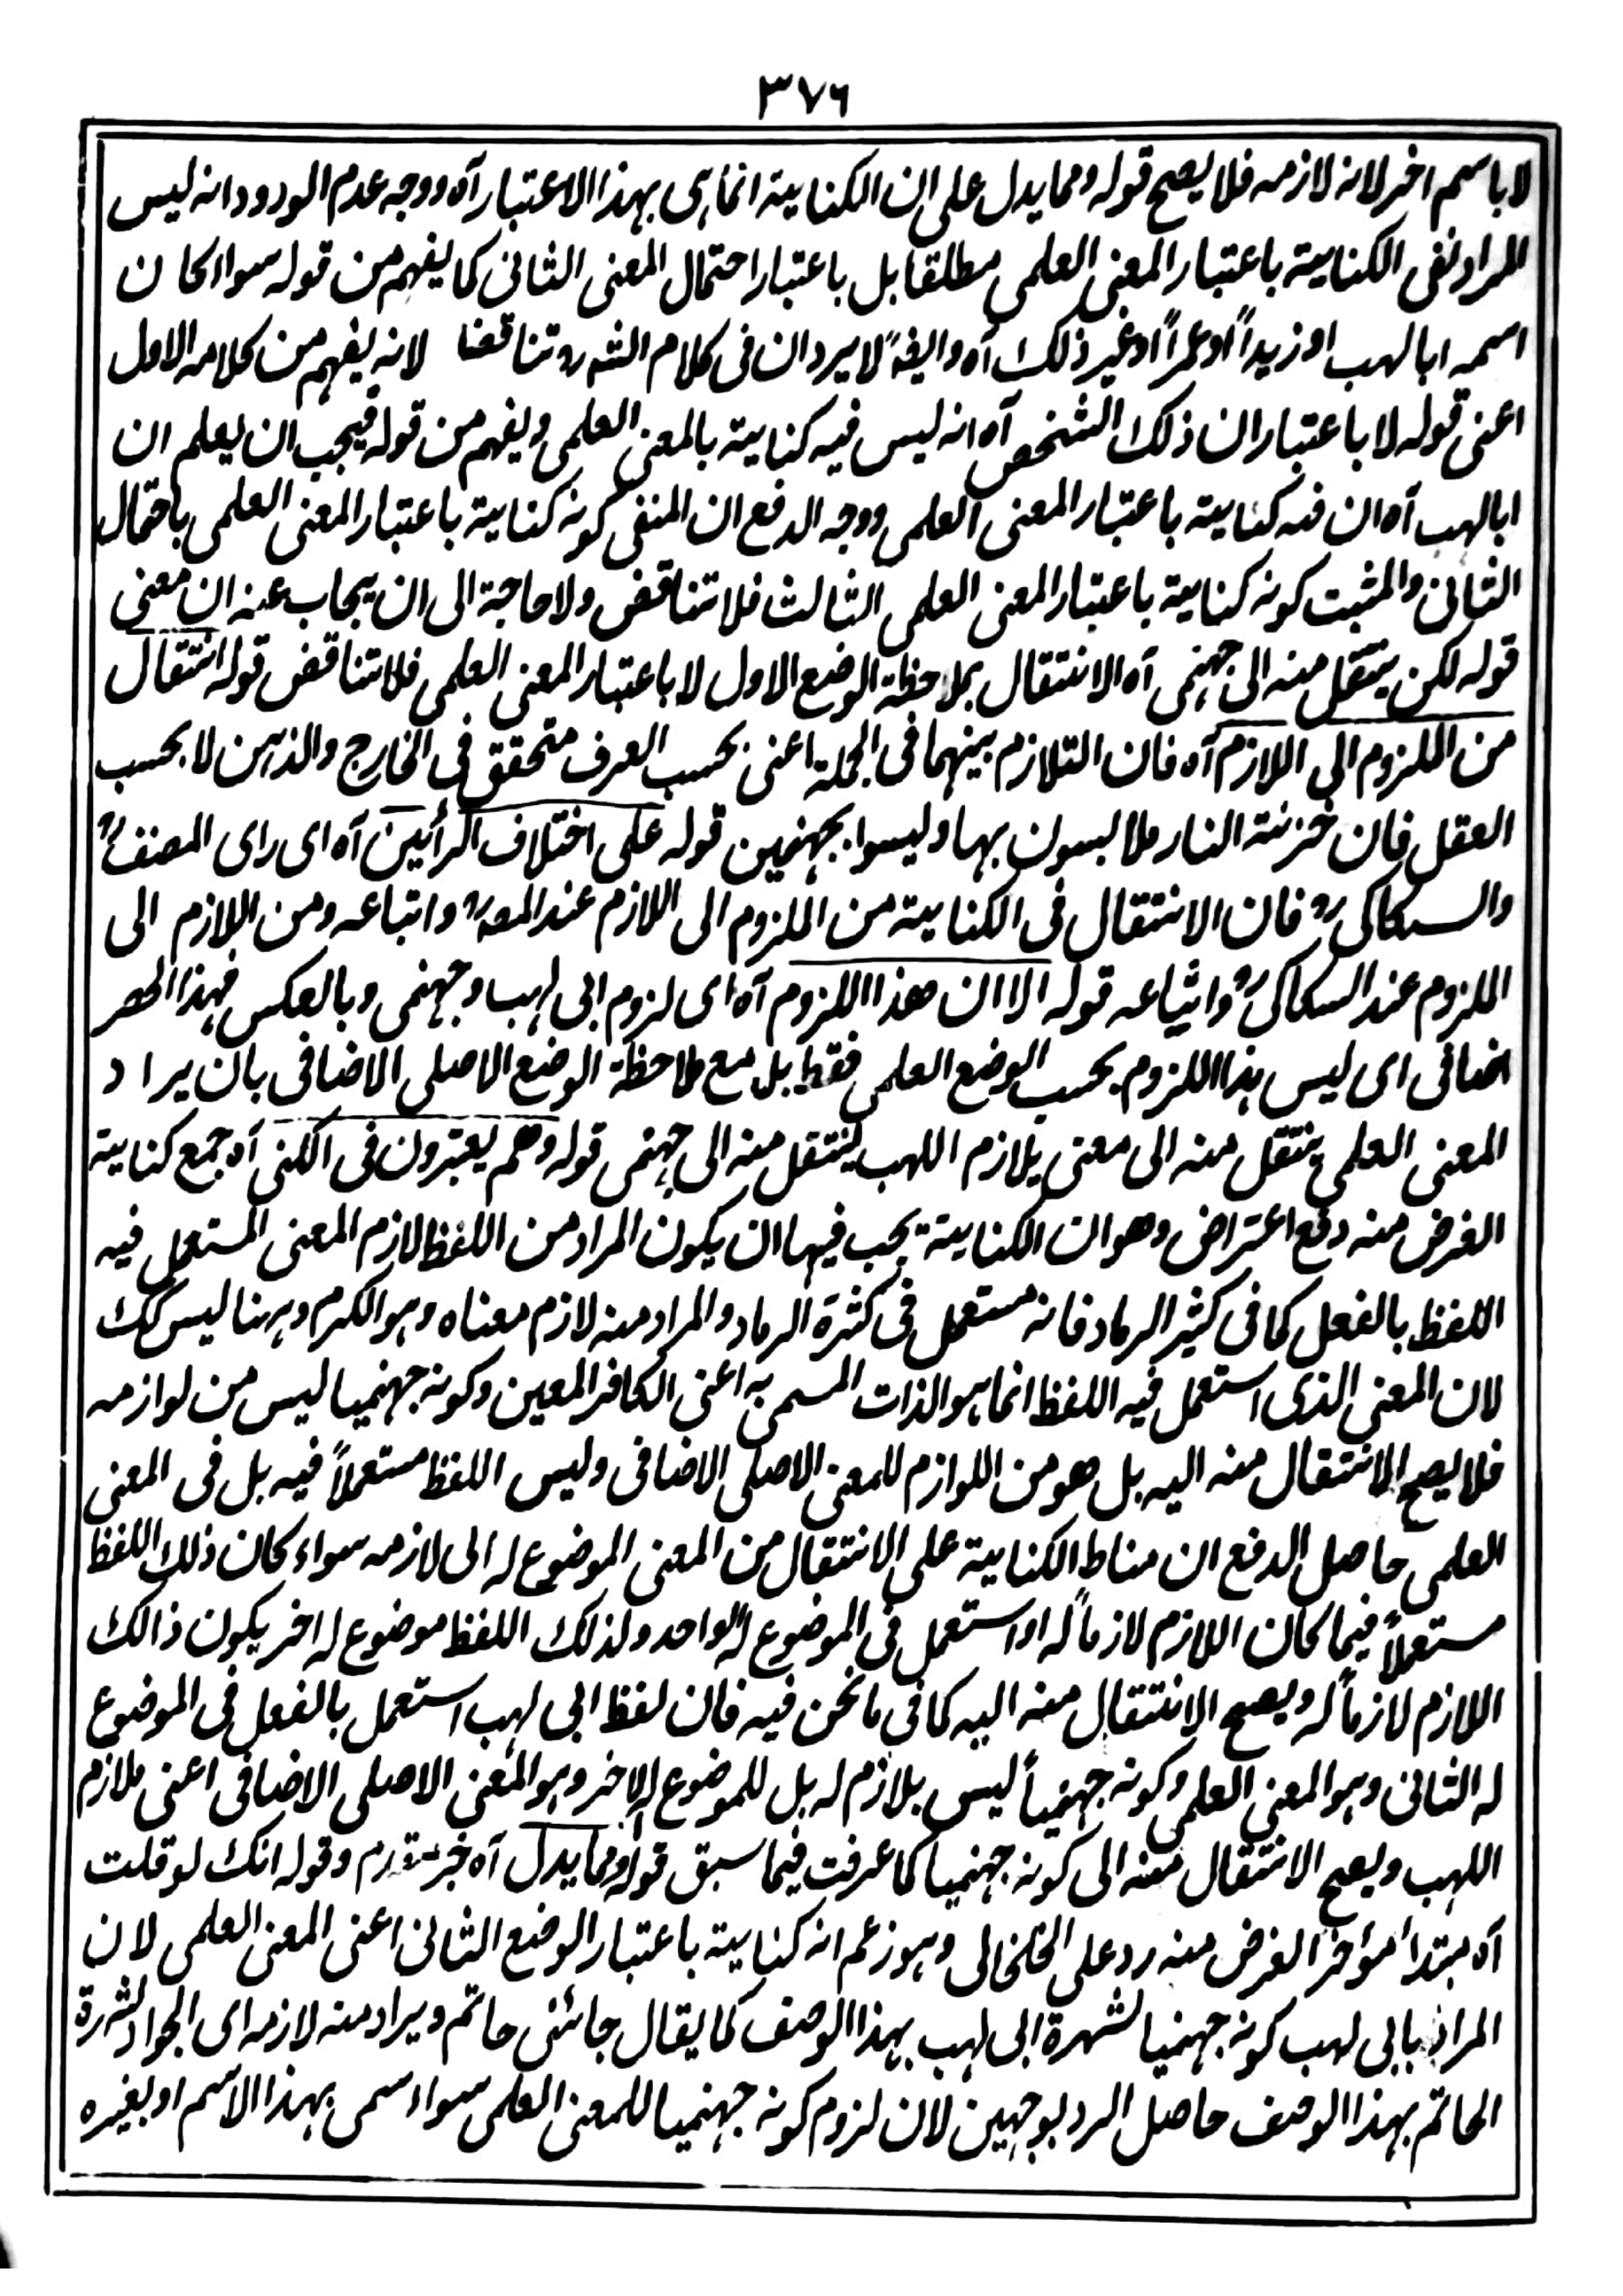 ٣٧٦
لا باسم اخر لانه لازمه فلا يصح قوله ومما يدل على ان الكناية انما هى بهذا الاعتبار آه ووجه عدم الورود انه ليس
المراد نفى الكناية باعتبار المعنى العلمى مطلقا بل باعتبار احتمال المعنى الثانى كما يفهم من قوله سواء كان
اسمه ابا لهب او زيداً او عمراً او غير ذلك آه وايضاً لا يرد ان فى كلام الشه تناقضا لانه يفهم من كلامه الاول
اعنى قوله لا باعتبار ان ذلك الشخص آه انه ليس فيه كناية بالمعنى العلمى ويفهم من قوله فيجب ان يعلم ان
ابا لهب آه ان فيه كناية باعتبار المعنى العلمى ووجه الدفع ان المنفى كونه كناية باعتبار المعنى العلمى باحتمال
الثانى والمثبت كونه كناية باعتبار المعنى العلمى الثالث فلا تناقض ولا حاجة الى ان يجاب عنه ان معنى
قوله لكن ينتقل منه الى جهنمى آه الانتقال بملاحظة الوضع الاول لا باعتبار المعنى العلمى فلا تناقض قوله انتقال
من الملزوم الى اللازم آه فان التلازم بينهما فى الجملة اعنى بحسب العرف متحقق فى الخارج والذهن لا بحسب
العقل فان خزنة النار ملابسون بها وليسوا بجهنميين قوله على اختلاف الرأيين آه اى راى المصنف رح
والسكاكى رح فان الانتقال فى الكناية من الملزوم الى اللازم عند المصه واتباعه ومن اللازم الى
الملزوم عند السكاكى رح واشياعه قوله الا ان هذا اللزوم آه اى لزوم ابى لهب وجهنمى وبالعكس فهذا الحصر
اضافى اى ليس هذا اللزوم بحسب الوضع العلمى فقط بل مع ملاحظة الوضع الاصلى الاضافى بان يراد
المعنى العلمى ينتقل منه الى معنى يلازم اللهب لينتقل منه الى جهنمى قوله وهم يعتبرون فى الكنى آه جمع كناية
الغرض منه دفع اعتراض وهو ان الكناية يجب فيها ان يكون المراد من اللفظ لازم المعنى المستعمل فيه
اللفظ بالفعل كما فى كثير الرماد فانه مستعمل فى كثرة الرماد والمراد منه لازم معناه وهو الكرم وههنا ليس كك
لان المعنى الذى استعمل فيه اللفظ انما هو الذات المسمى به اعنى الكافر المعين وكونه جهنميا ليس من لوازمه
فلا يصح الانتقال منه اليه بل هو من اللوازم للمعنى الاصلى الاضافى وليس اللفظ مستعملاً فيه بل فى المعنى
العلمى حاصل الدفع ان مناط الكناية على الانتقال من المعنى الموضوع له الى لازمه سواء كان ذلك اللفظ
مستعملاً فيما كان اللازم لازماً له او استعمل فى الموضوع له الواحد ولذلك اللفظ موضوع له اخر يكون ذالك
اللازم لازماً له ويصح الانتقال منه اليه كما فى ما نحن فيه فان لفظ ابى لهب استعمل بالفعل فى الموضوع
له الثانى وهو المعنى العلمى وكونه جهنمياً ليس بلازم له بل للموضوع له الاخر وهو المعنى الاصلى الاضافى اعنى ملازم
اللهب ويصح الانتقال منه الى كونه جهنميا كما عرفت فيما سبق قوله ومما يدل آه خبر مقدم وقوله انك لو قلت
آه مبتدأ مؤخر الغرض منه رد على الخلخالى وهو زعم انه كناية باعتبار الوضع الثانى اعنى المعنى العلمى لان
المراد بابى لهب كونه جهنميا لشهرة ابى لهب بهذا الوصف كما يقال جائنى حاتم ويراد منه لازمه اى الجواد لشهرة
الحاتم بهذا الوصف حاصل الرد بوجهين لان لزوم كونه جهنميا للمعنى العلمى سواء سمى بهذا الاسم او بغيره